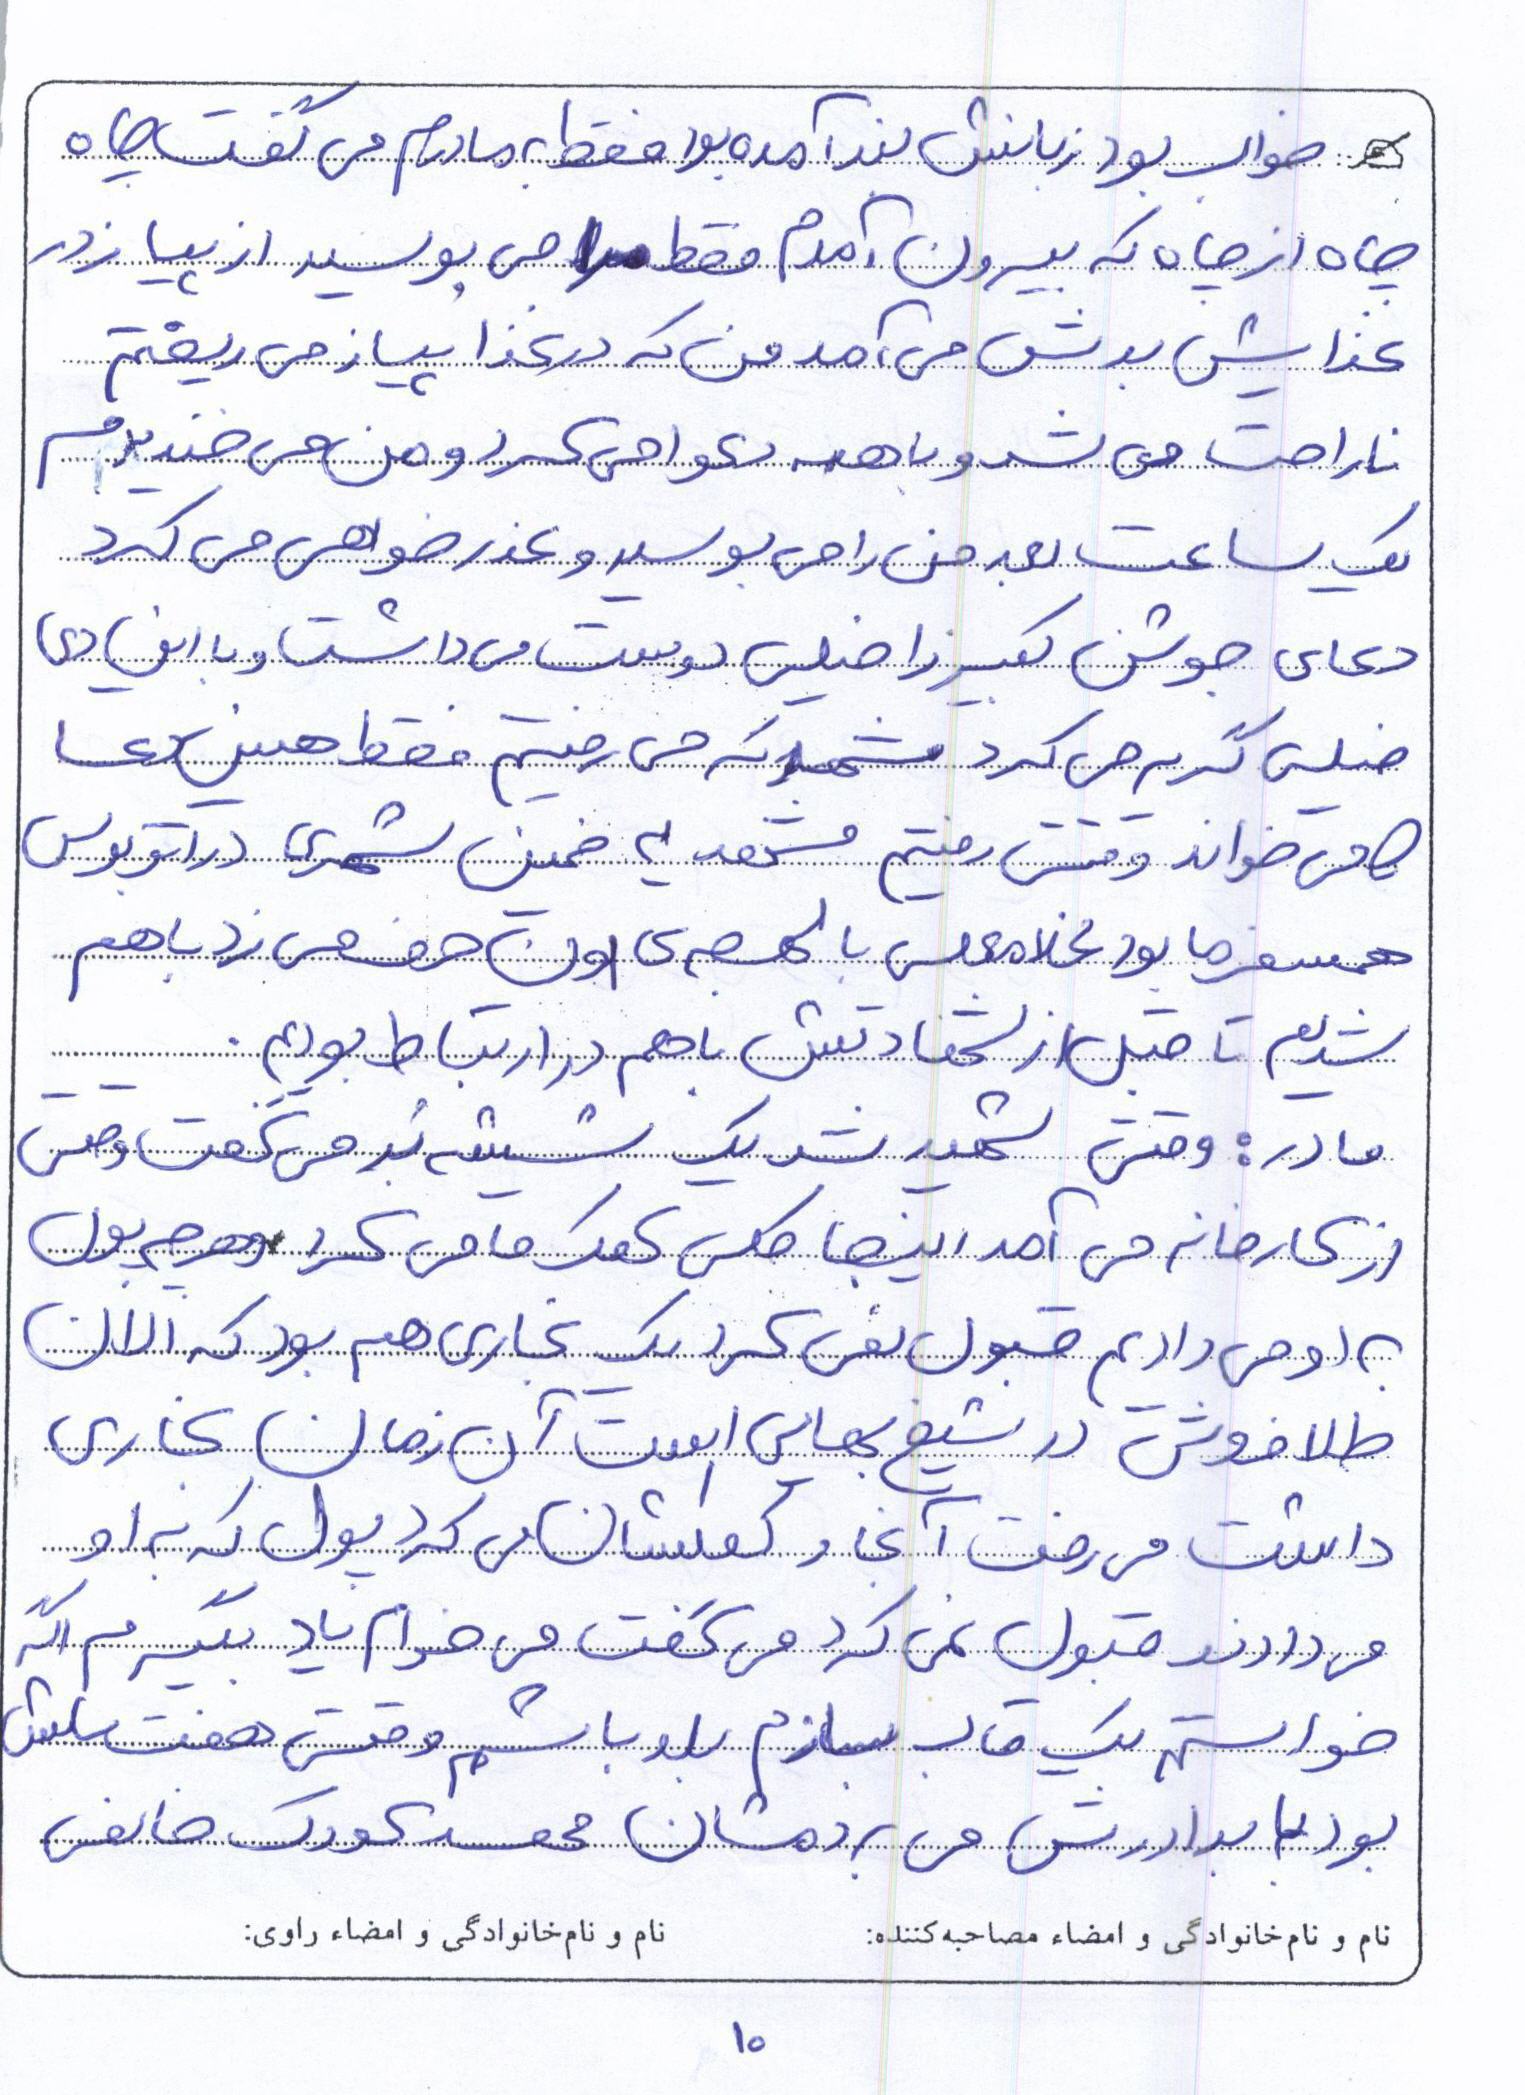 خواب بود زبانش بند آمده بود فقط به مادرم می گفت چاه
چاه از چاه که بیرون آمدم فقط مرا می بوسید از پیاز در
غذایش بدش می آمد من که در غذا پیاز می ریختم
ناراحت می شد و با همه دعوا می کرد و من می خندیدم
یک ساعت بعد من را می بوسید و عذرخواهی می کرد
دعای جوشن کبیر را خیلی دوست می داشت و با این دعای
خیلی گریه می کرد مشهد که می رفتیم فقط همین دعا
می خواند وقتی رفتیم مشهد یه خمینی شهری در اتوبوس
همسفر ما بود غلامعلی با لهجه ی اون حرف می زد با هم
شدیم تا قبل از شهادتش با هم در ارتباط بودیم.
مادر: وقتی شهید شد یک شیشه بر می گفت وقتی
از کارخانه می آمد اینجا خیلی کمک ما می کرد و هر چه پول
به او می دادیم قبول نمی کرد یک نجاری هم بود که الان
طلافروش در شیخ بهایی است آن زمان نجاری
داشت می رفت آنجا و کمکشان می کرد پول که به او
می دادند قبول نمی کرد می گفت می خوام یاد بگیرم اگه
خواستم یک قاب بسازم بلد باشم وقتی هفت سالش
بود با برادرش می بردمشان محمد کودک
نام و نام خانوادگی و امضاء مصاحبه کننده: نام و نام خانوادگی و امضاء راوی:
۱۰